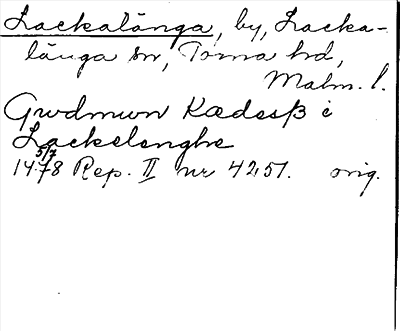 Lackalänga, by, Lacka-
länga sn, Torna hd,
Malm. l.
Gwdmwn Kædessß i
Lackelenghe
5/7
1478 Rep. II nr 4251. orig.